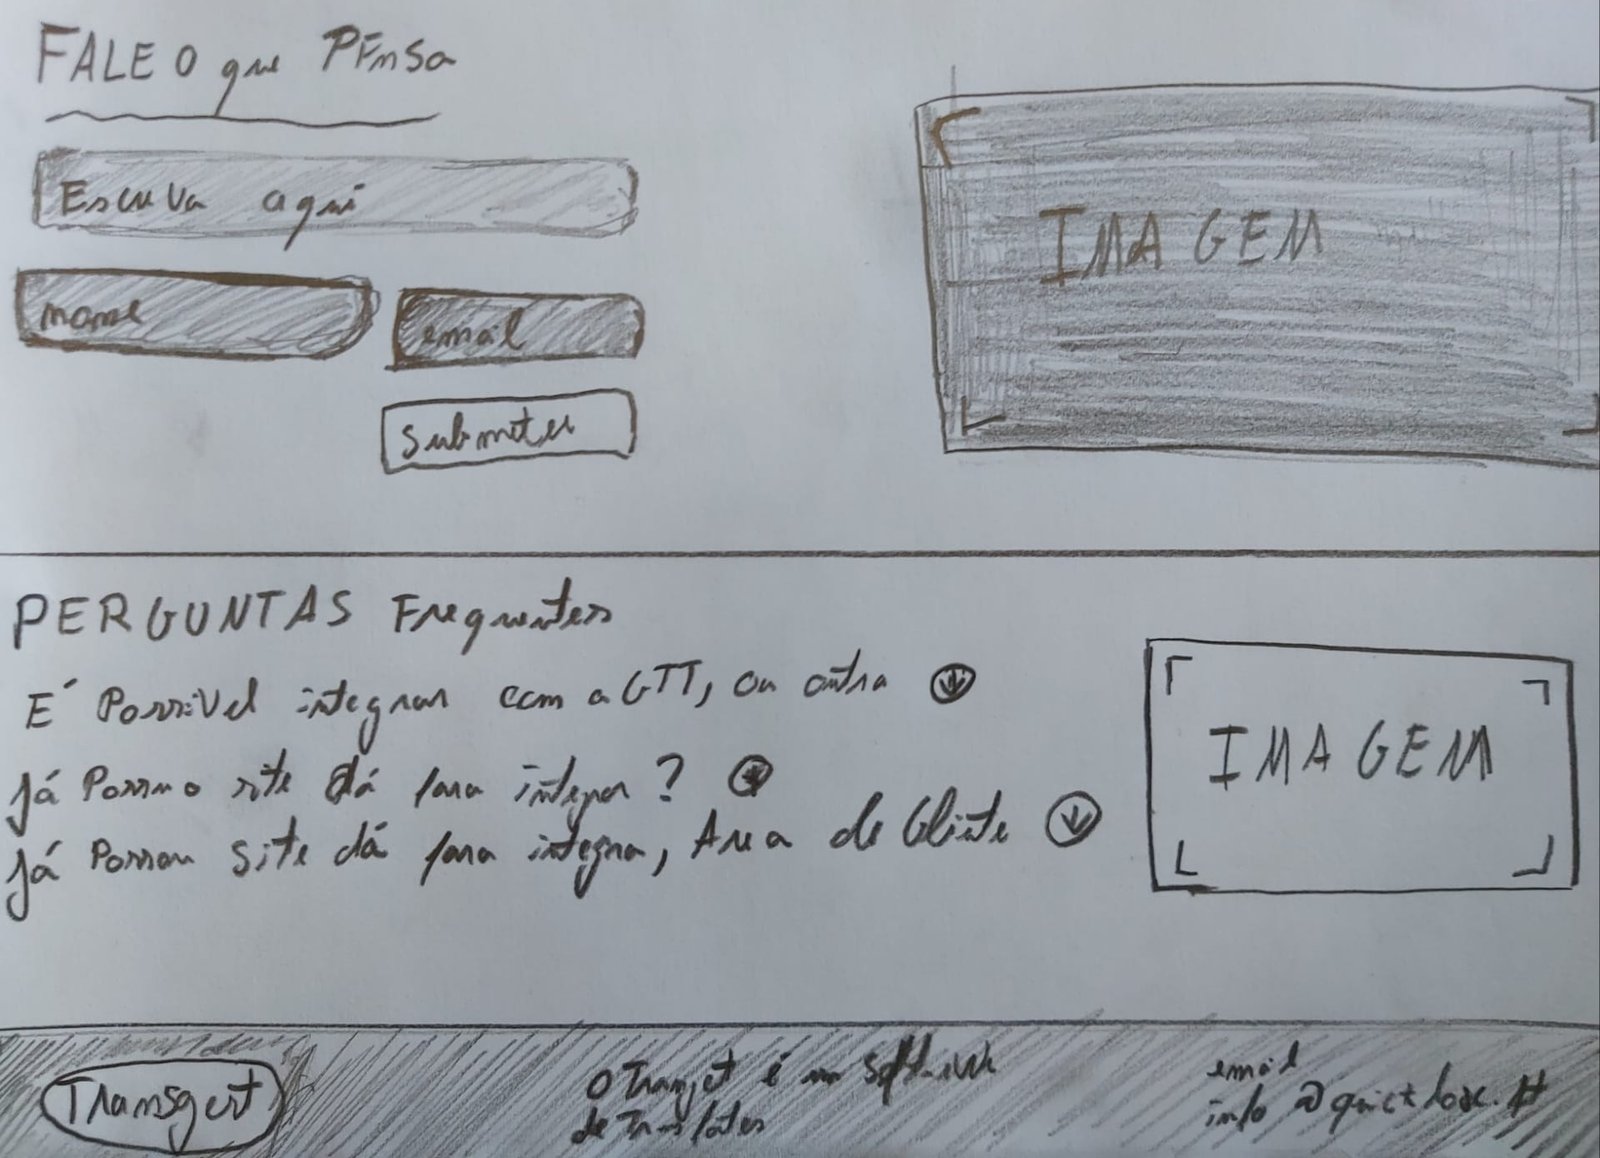 FALE O que PEnSa
Escreva aqui
nome
email
Submeter
IMAGEM
PERGUNTAS Frequentes
É Possivel integrar com a GTT, ou outra
Já Possuo site dá para integrar?
Já Possuu site dá para integra, Area de Cliente
IMAGEM
Transgest
O Transget é um Software
de Transportes
email
info@quic